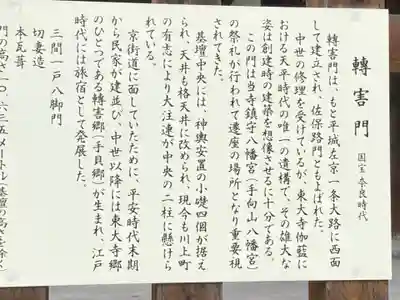 轉害門
国宝 奈良時代
轉害門は、もと平城左京一条大路に西面
して建立され、佐保路門ともよばれた。
中世の修理を受けているが、東大寺伽藍に
おける天平時代の唯一の遺構で、その雄大な
姿は創建時の建築を想像させるに十分である。
この門は当寺鎮守八幡宮(手向山八幡宮)
の祭礼が行われて遷座の場所となり重要視
されてきた。
基壇中央には、神輿安置の小礎四個が据え
られ、天井も格天井に改められ、現今も川上町
の有志により大注連が中央の二柱に懸けら
れている。
京街道に面していたために、平安時代末期
から民家が建並び、中世以降には東大寺郷
のひとつである轉害郷(手貝郷)が生まれ、江戸
時代には旅宿として発展した。
三間一戸八脚門
切妻造
本瓦葺
門の高さ一〇.六三五メートル(基壇の高さを除く